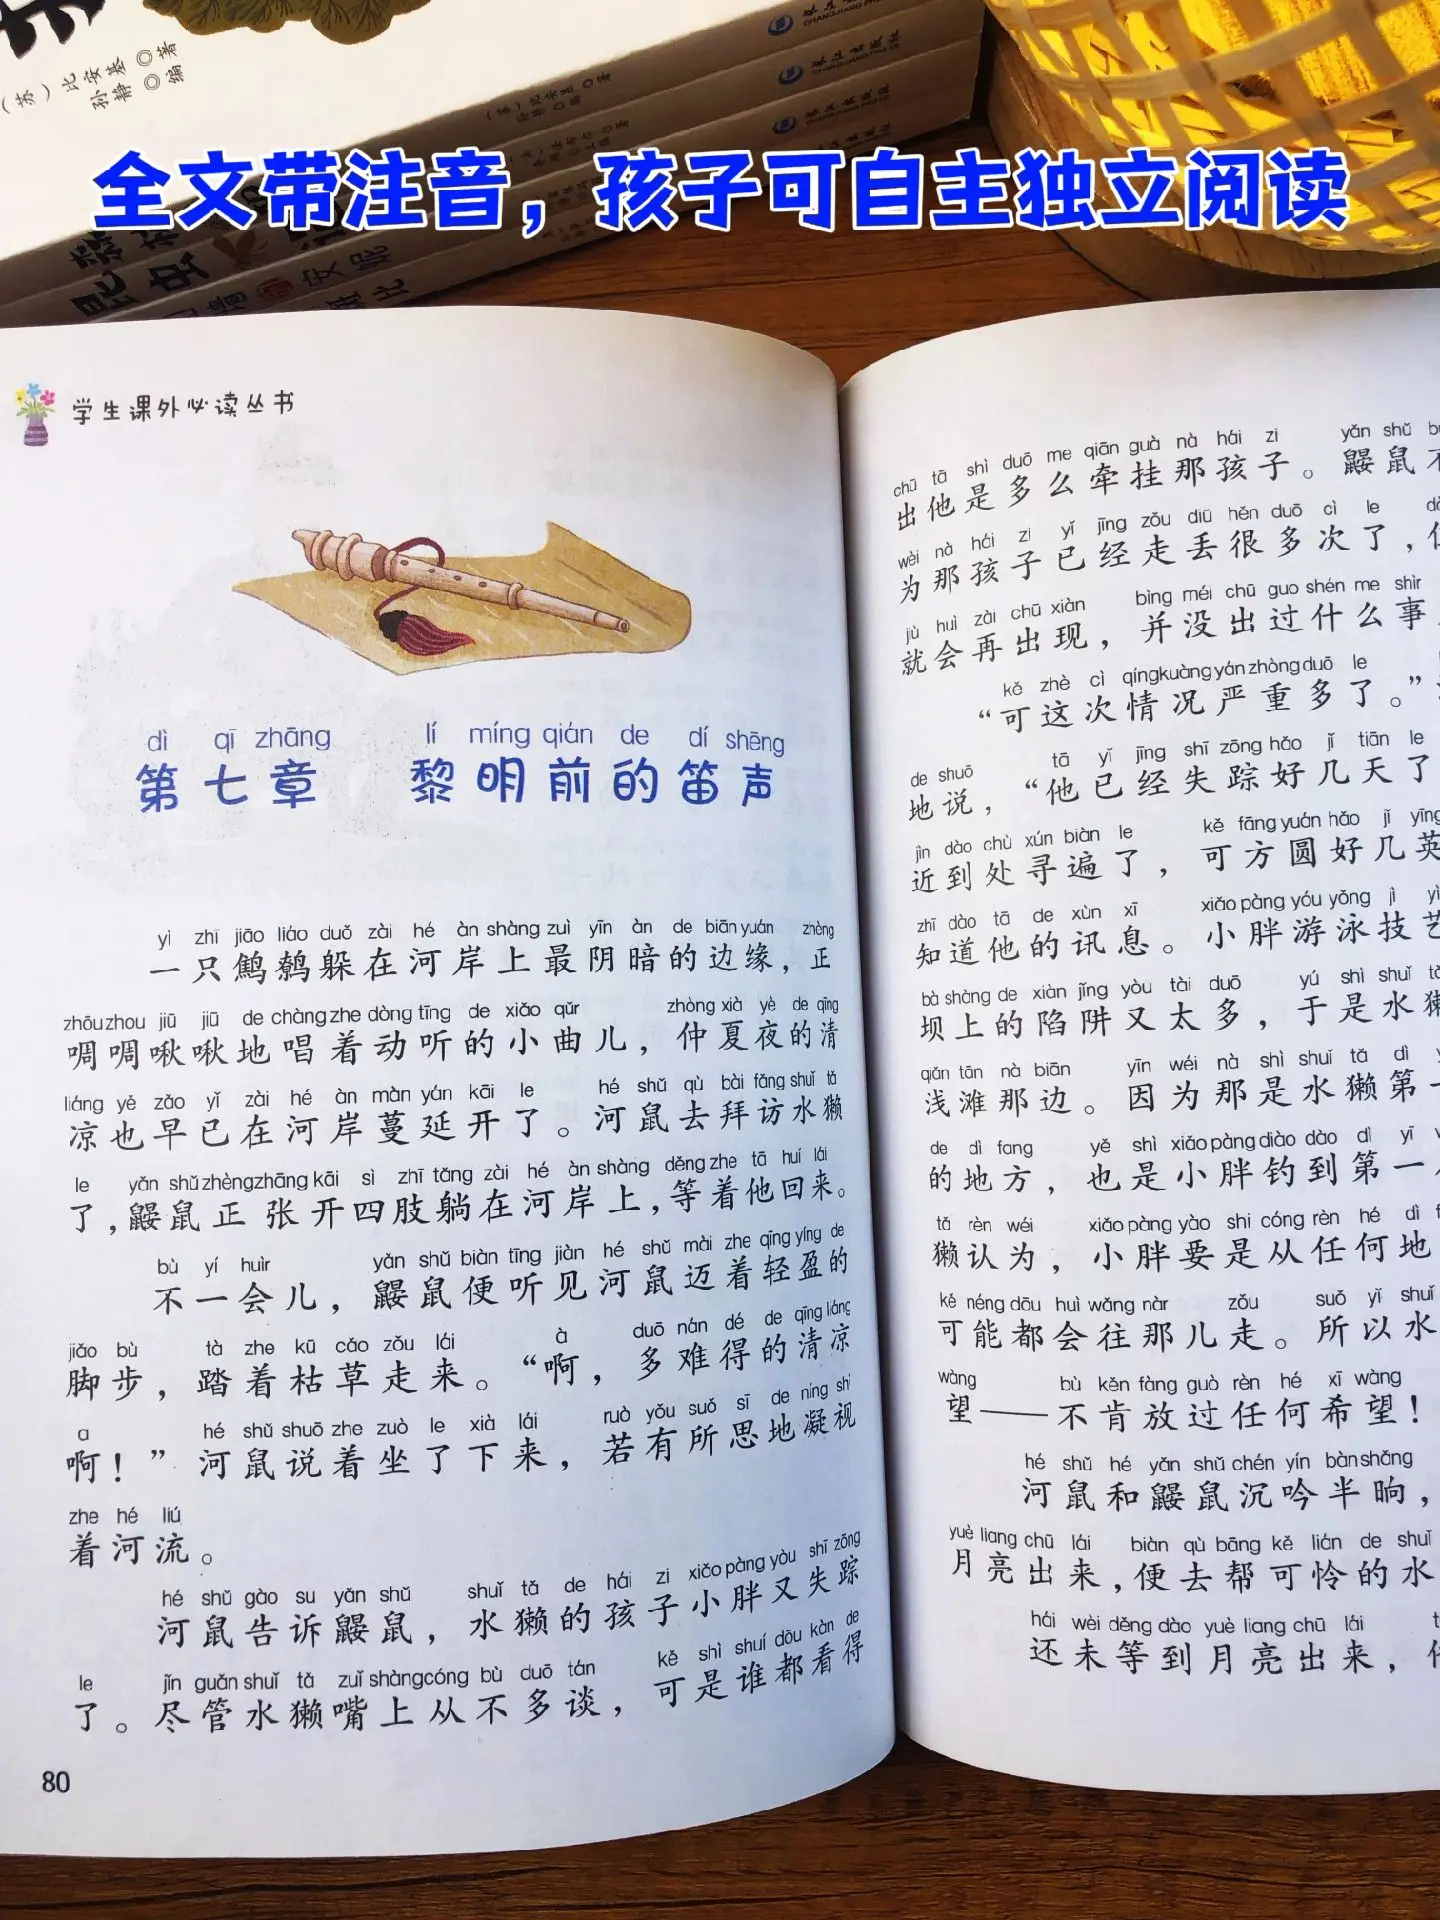 （苏）比安基◎著
孙静◎编
全文带注音，孩子可自主独立阅读
学生课外必读丛书
dì qī zhāng lí míng qián de dí shēng
第七章 黎明前的笛声
yì zhī jiāo liáo duǒ zài hé àn shàng zuì yīn àn de biān yuán zhèng
一只鹪鹩躲在河岸上最阴暗的边缘，正
zhōu zhou jiū jiū de chàng zhe dòng tīng de xiǎo qǔr zhòng xià yè de qīng
啁啁啾啾地唱着动听的小曲儿，仲夏夜的清
liáng yě zǎo yǐ zài hé àn màn yán kāi le hé shǔ qù bài fǎng shuǐ tǎ
凉也早已在河岸蔓延开了。河鼠去拜访水獭
le yǎn shǔ zhèng zhāng kāi sì zhī tǎng zài hé àn shàng děng zhe tā huí lái
了，鼹鼠正张开四肢躺在河岸上，等着他回来。
bù yí huìr yǎn shǔ biàn tīng jiàn hé shǔ mài zhe qīng yíng de
不一会儿，鼹鼠便听见河鼠迈着轻盈的
jiǎo bù tà zhe kū cǎo zǒu lái à duō nán dé de qīng liáng
脚步，踏着枯草走来。“啊，多难得的清凉
a hé shǔ shuō zhe zuò le xià lái ruò yǒu suǒ sī de níng shì
啊！”河鼠说着坐了下来，若有所思地凝视
zhe hé liú
着河流。
hé shǔ gào su yǎn shǔ shuǐ tǎ de hái zi xiǎo pàng yòu shī zōng
河鼠告诉鼹鼠，水獭的孩子小胖又失踪
le jǐn guǎn shuǐ tǎ zuǐ shàng cóng bù duō tán kě shì shuí dōu kàn de
了。尽管水獭嘴上从不多谈，可是谁都看得
80
chū tā shì duō me qiān guà nà hái zi yǎn shǔ
出他是多么牵挂那孩子。鼹鼠
wèi nà hái zi yǐ jīng zǒu diū hěn duō cì le
为那孩子已经走丢很多次了，
jù huì zài chū xiàn bìng méi chū guo shén me shìr
就会再出现，并没出过什么事
kě zhè cì qíng kuàng yán zhòng duō le
“可这次情况严重多了。”
de shuō tā yǐ jīng shī zōng hǎo jǐ tiān le
地说，“他已经失踪好几天了
jìn dào chù xún biàn le kě fāng yuán hǎo jǐ yīng
近到处寻遍了，可方圆好几英
zhī dào tā de xùn xī xiǎo pàng yóu yǒng jì yì
知道他的讯息。小胖游泳技艺
bà shàng de xiàn jǐng yòu tài duō yú shì shuǐ tǎ
坝上的陷阱又太多，于是水獭
qiǎn tān nà biān yīn wéi nà shì shuǐ tǎ dì
浅滩那边。因为那是水獭第一
de dì fang yě shì xiǎo pàng diào dào dì yī
的地方，也是小胖钓到第一
tǎ rèn wéi xiǎo pàng yào shi cóng rèn hé dì
獭认为，小胖要是从任何地
kě néng dōu huì wǎng nàr zǒu suǒ yǐ shuǐ
可能都会往那儿走。所以水
wàng bù kěn fàng guò rèn hé xī wàng
望——不肯放过任何希望！
hé shǔ hé yǎn shǔ chén yín bàn shǎng
河鼠和鼹鼠沉吟半晌，
yuè liang chū lái biàn qù bāng kě lián de shuǐ
月亮出来，便去帮可怜的水
hái wèi děng dào yuè liang chū lái
还未等到月亮出来，